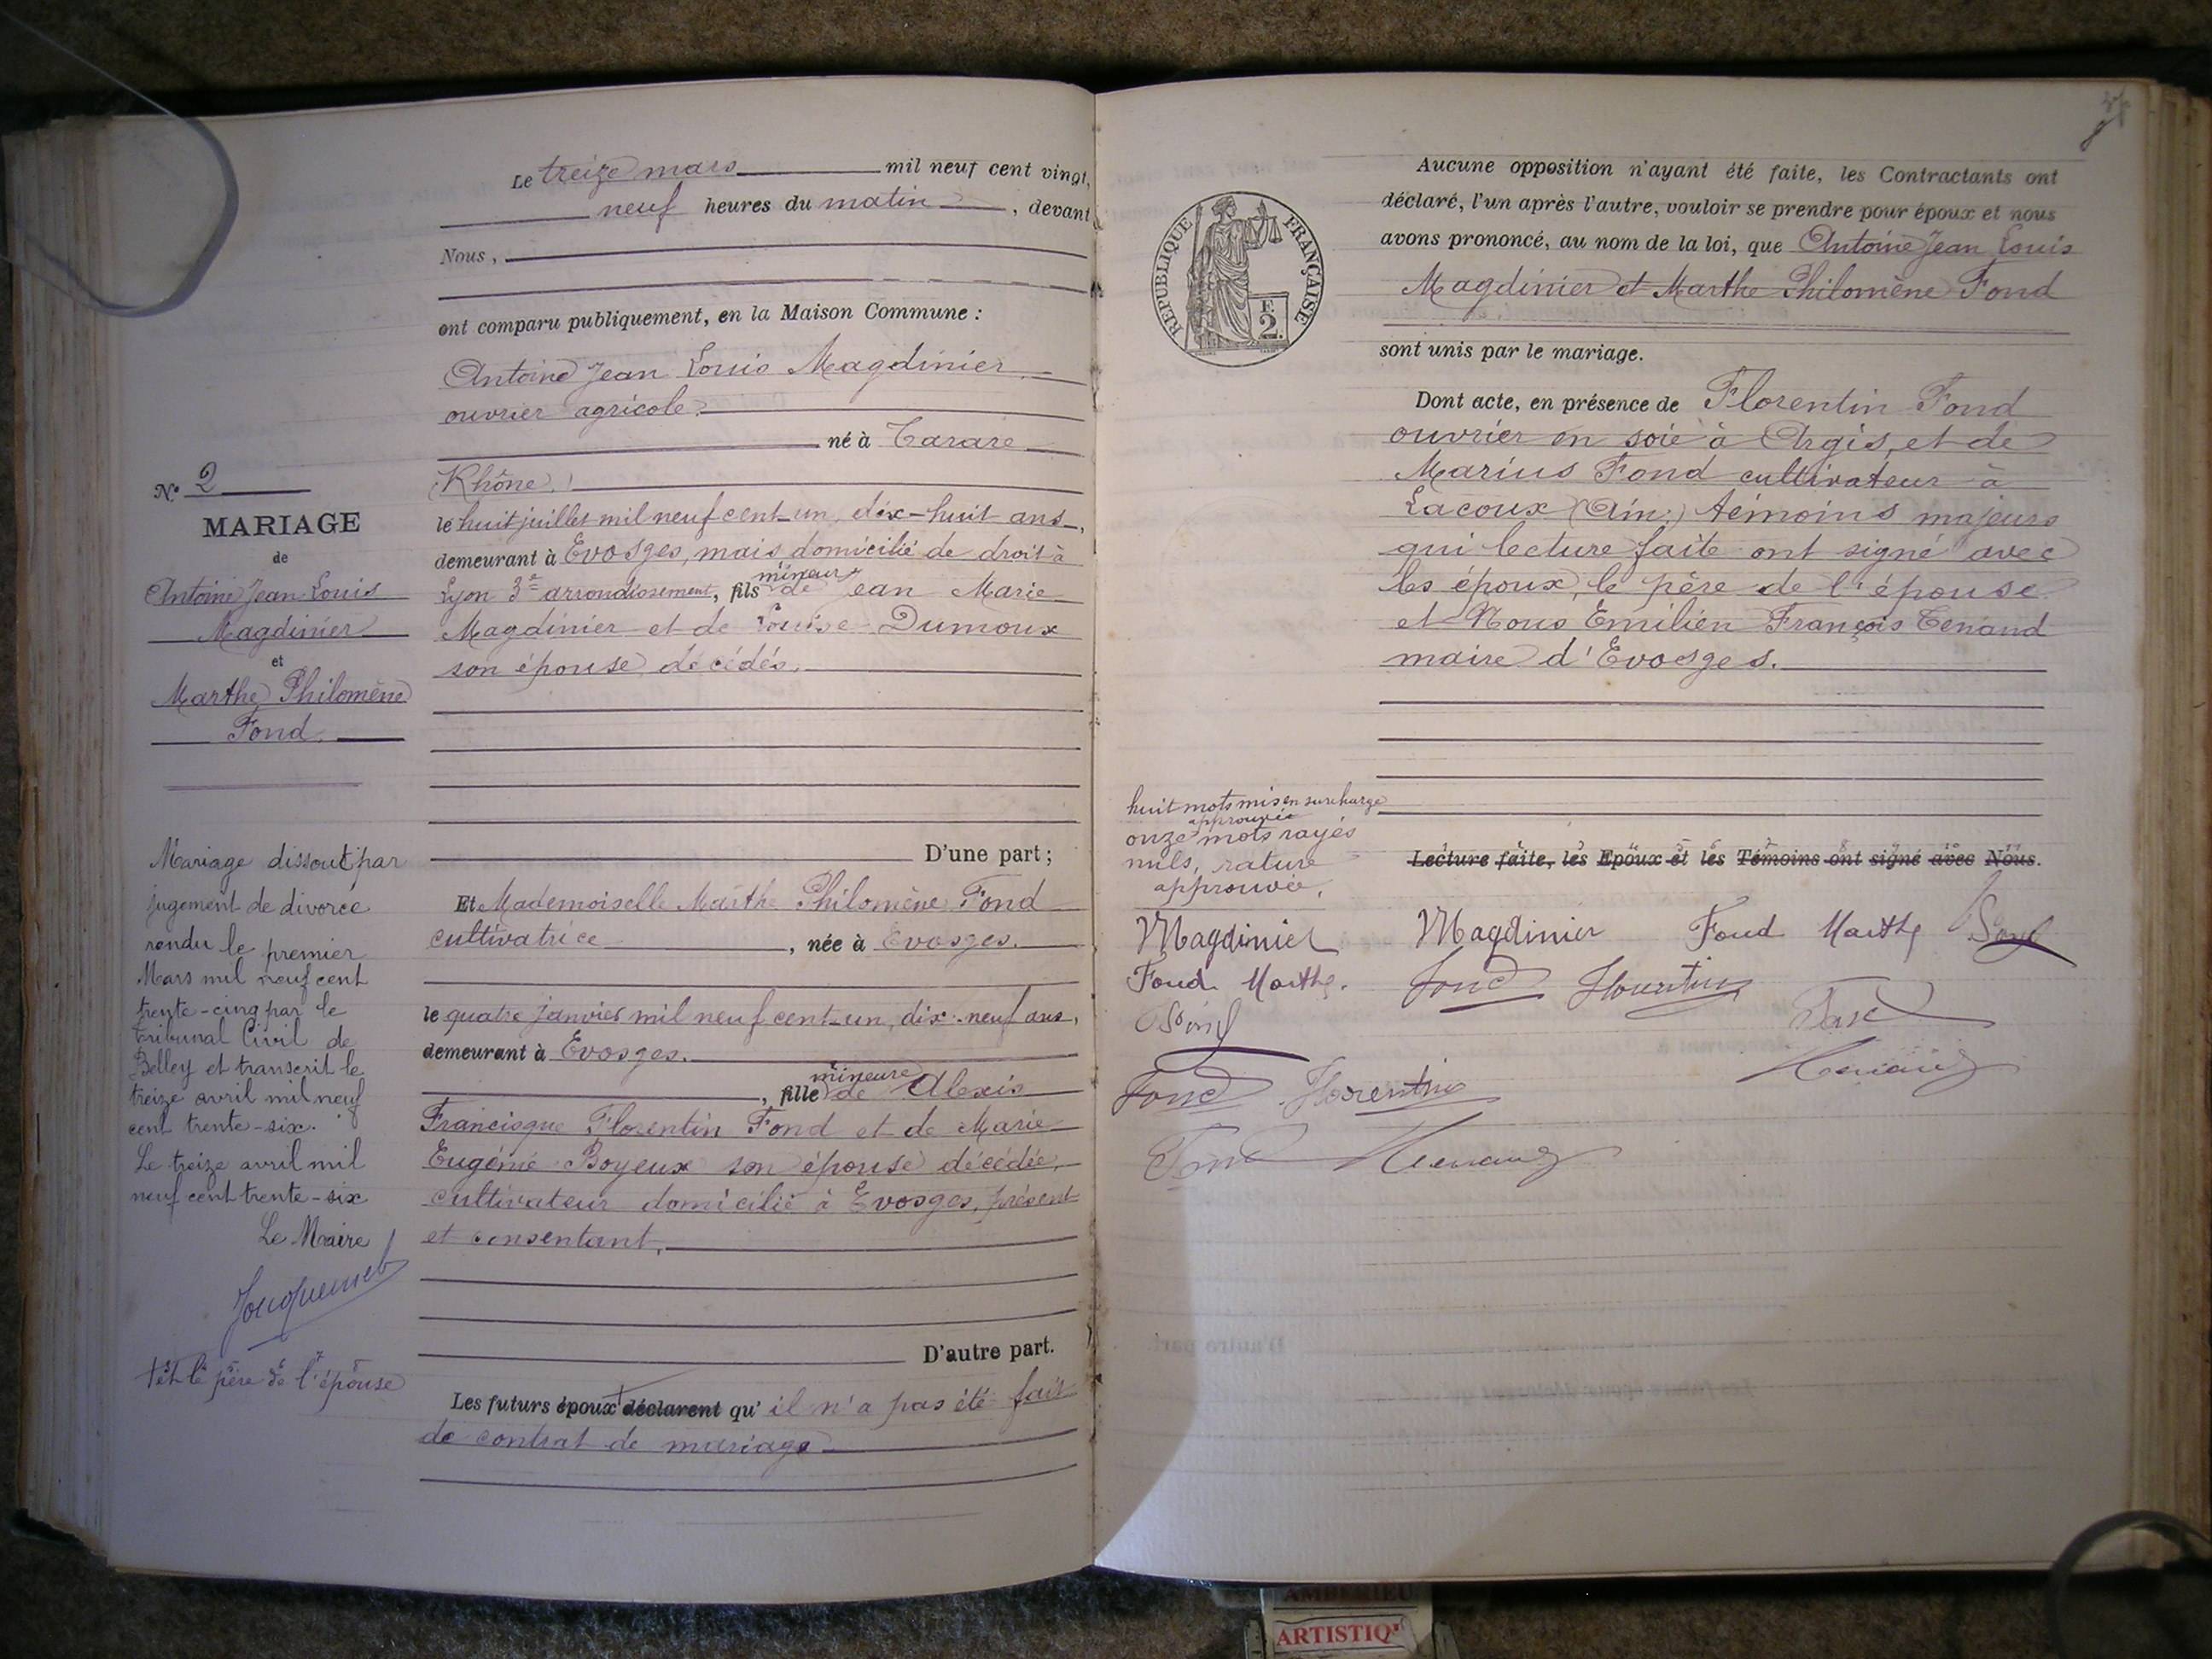 Le treize mars mil neuf cent vingt,
neuf heures du matin, devant
Nous,
ont comparu publiquement, en la Maison Commune :
Antoine Jean Louis Magdinier
ouvrier agricole
né à Tarare
(Rhône)
le huit juillet mil neuf cent un, dix-huit ans,
demeurant à Evosges, mais domicilié de droit à
mineur
Lyon 3e arrondissement, fils de Jean Marie
Magdinier et de Louise Dumoux
son épouse décédés.
D'une part ;
Et Mademoiselle Marthe Philomène Fond
cultivatrice, née à Evosges.
le quatre janvier mil neuf cent un, dix-neuf ans,
demeurant à Evosges.
mineure
, fille de Alexis
Francisque Florentin Fond et de Marie
Eugénie Boyeux son épouse décédée,
cultivateur domicilié à Evosges, présent
et consentant.
D'autre part.
Les futurs époux déclarent qu' il n'a pas été fait
de contrat de mariage
N° 2
MARIAGE
de
Antoine Jean Louis
Magdinier
et
Marthe Philomène
Fond.
Mariage dissout par
jugement de divorce
rendu le premier
Mars mil neuf cent
trente-cinq par le
Tribunal Civil de
Belley et transcrit le
treize avril mil neuf
cent trente-six.
Le treize avril mil
neuf cent trente-six
Le Maire
et le père de l'épouse
REPUBLIQUE FRANÇAISE
F.
2.
Aucune opposition n'ayant été faite, les Contractants ont
déclaré, l'un après l'autre, vouloir se prendre pour époux et nous
avons prononcé, au nom de la loi, que Antoine Jean Louis
Magdinier et Marthe Philomène Fond
sont unis par le mariage.
Dont acte, en présence de Florentin Fond
ouvrier en soie à Argis, et de
Marius Fond cultivateur à
Lacoux (Ain) témoins majeurs
qui lecture faite ont signé avec
les époux, le père de l'épouse
et Nous Emilien François Tenand
maire d'Evosges.
Lecture faite, les Epoux et les Témoins ont signé avec Nous.
huit mots mis en surcharge
approuvée
onze mots rayés
nuls, rature
approuvée.
Magdinier
Fond Marthe.
Fond
Fond Florentin
Fond Tenand
Magdinier Fond Marthe Fond
Fond Florentin
Fond
Tenand
AMBERIEU
ARTISTIQ